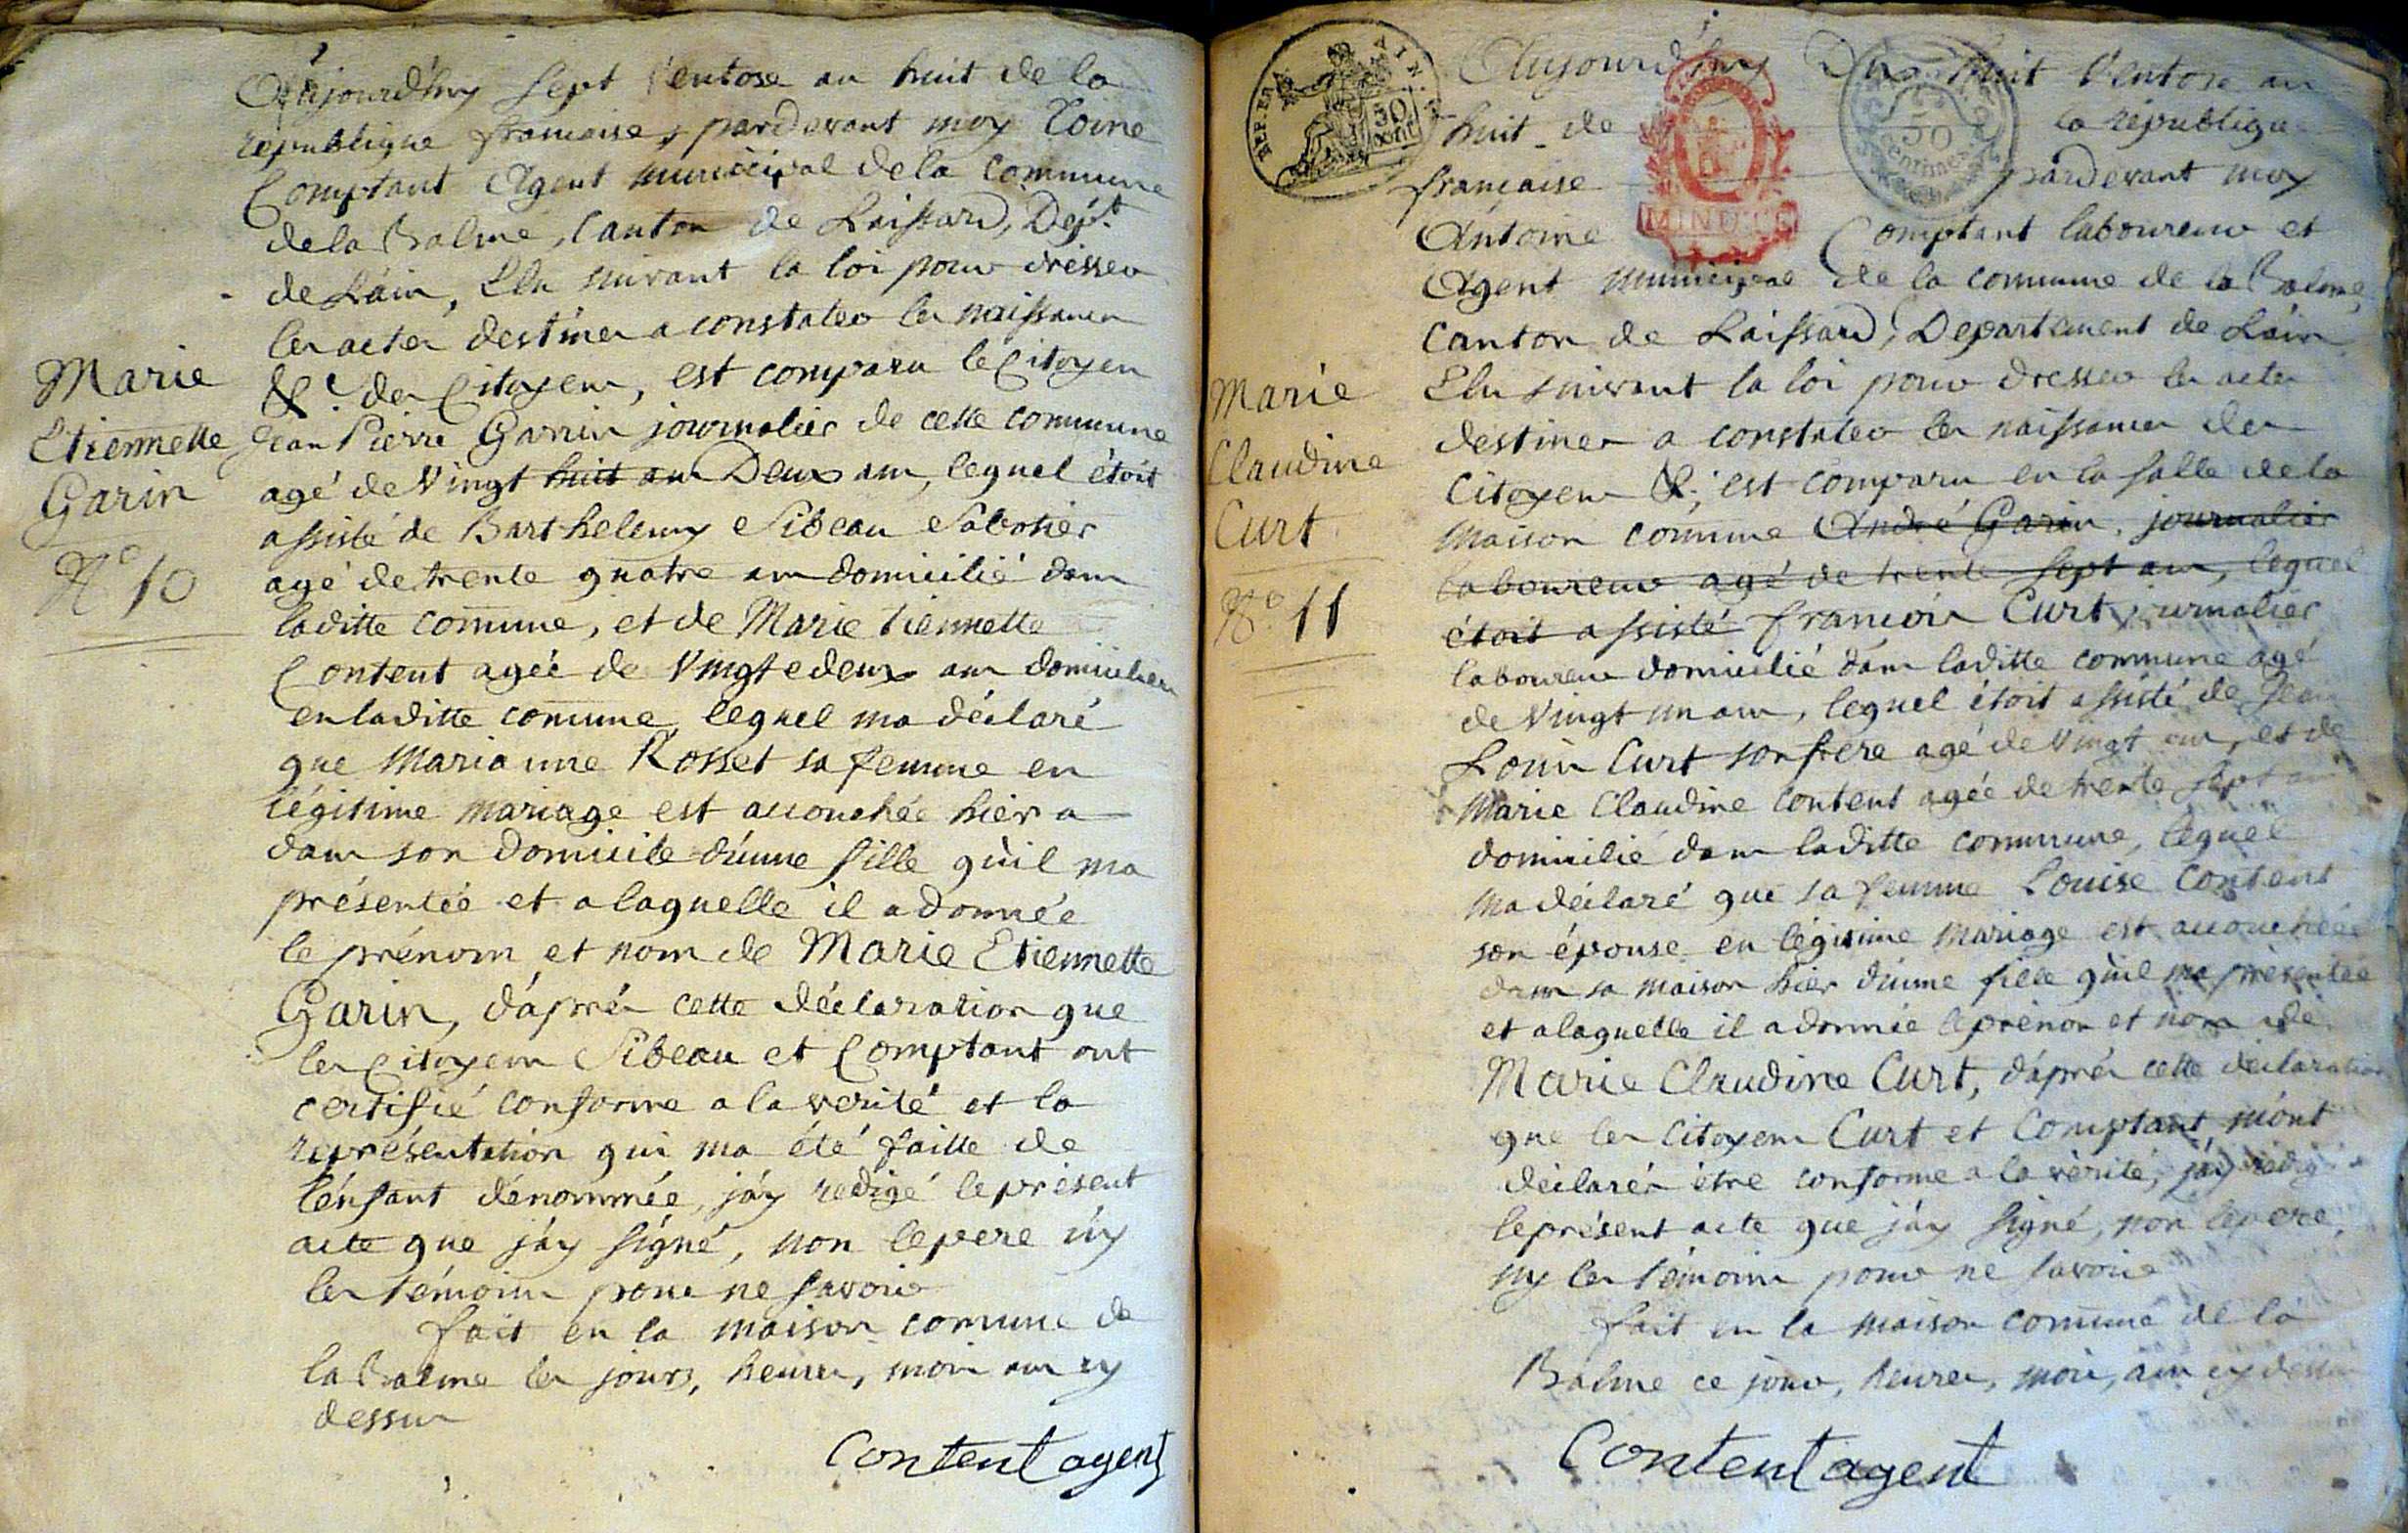 Aujourd'huy sept Ventose an huit de la
republique francaise, pardevant moy Toine
Comptant Agent municipal de la Commune
de la Balme, Canton de Leissard, Dept.
de Lain, Elu suivant la loi pour dresser
les actes destines a constater les naissances
&c des Citoyens, est comparu le Citoyen
Marie
Etiennette
Garin
No 10
Jean Pierre Garrin journalier de cette commune
agé de Vingt huit ans Deux ans, lequel étoit
assisté de Barthelemy Sibeau Sabotier
agé de trente quatre ans domicilié dans
laditte comune, et de Marie tiennette
Content agée de Vingtedeux ans domiciliee
en laditte comune, lequel ma déclaré
que Marianne Rosset sa femme en
légitime mariage est accouchée hier a
dans son domicile d'une fille qu'il ma
présentée et a laquelle il a donnée
le prénom et nom de Marie Etiennette
Garin, d'aprés cette déclaration que
les Citoyens Sibeau et Comptant ont
certifié conforme a la verité et la
représentation qui ma été faitte de
l'enfant dénommée, j'ay redigé le présent
acte que j'ay signé, non le pere n'y
les témoins pour ne savoir
fait en la maison comune de
la Balme les jours, heures, mois ans cy
dessus
Content agent
REP. FRA
50
cent
MINUTES
50
centimes
Aujourd'huy Du huit Ventose an
huit de la républiqe
française pardevant moy
Antoine Comptant laboureur et
Agent municipal de la commune de la Balme,
Canton de Leissard, Departement de Lain
Elu suivant la loi pour dresser les actes
destines a constater les naissances des
Citoyens &; est comparu en la salle de la
maison comune André Garin, journalier
laboureur agé de trente sept ans, lequel
étoit assisté francois Curt journalier
laboureur domicilié dans laditte commune agé
de Vingt un ans, lequel étoit assisté de Jean
Louis Curt son frere agé de Vingt ans, et de
Marie Claudine Content agée de trente sept ans
domicilié dans laditte commune, lequel
ma déclaré que sa femme Louise Content
son épouse en légitime mariage est accouchée
dans sa maison hier d'une fille qu'il ma présentée
et a laquelle il a donnée le prénom et nom de
Marie Claudine Curt, d'aprés cette declaration
que les Citoyens Curt et Comptant, m'ont
déclarés être conforme a la vérité, j'ay redigé
le présent acte que j'ay signé, non le pere,
ny les témoins pour ne savoir
fait en la maison comune de la
Balme ce jour, heures, mois, ans cy dessus
Content agent
Marie
Claudine
Curt
No 11